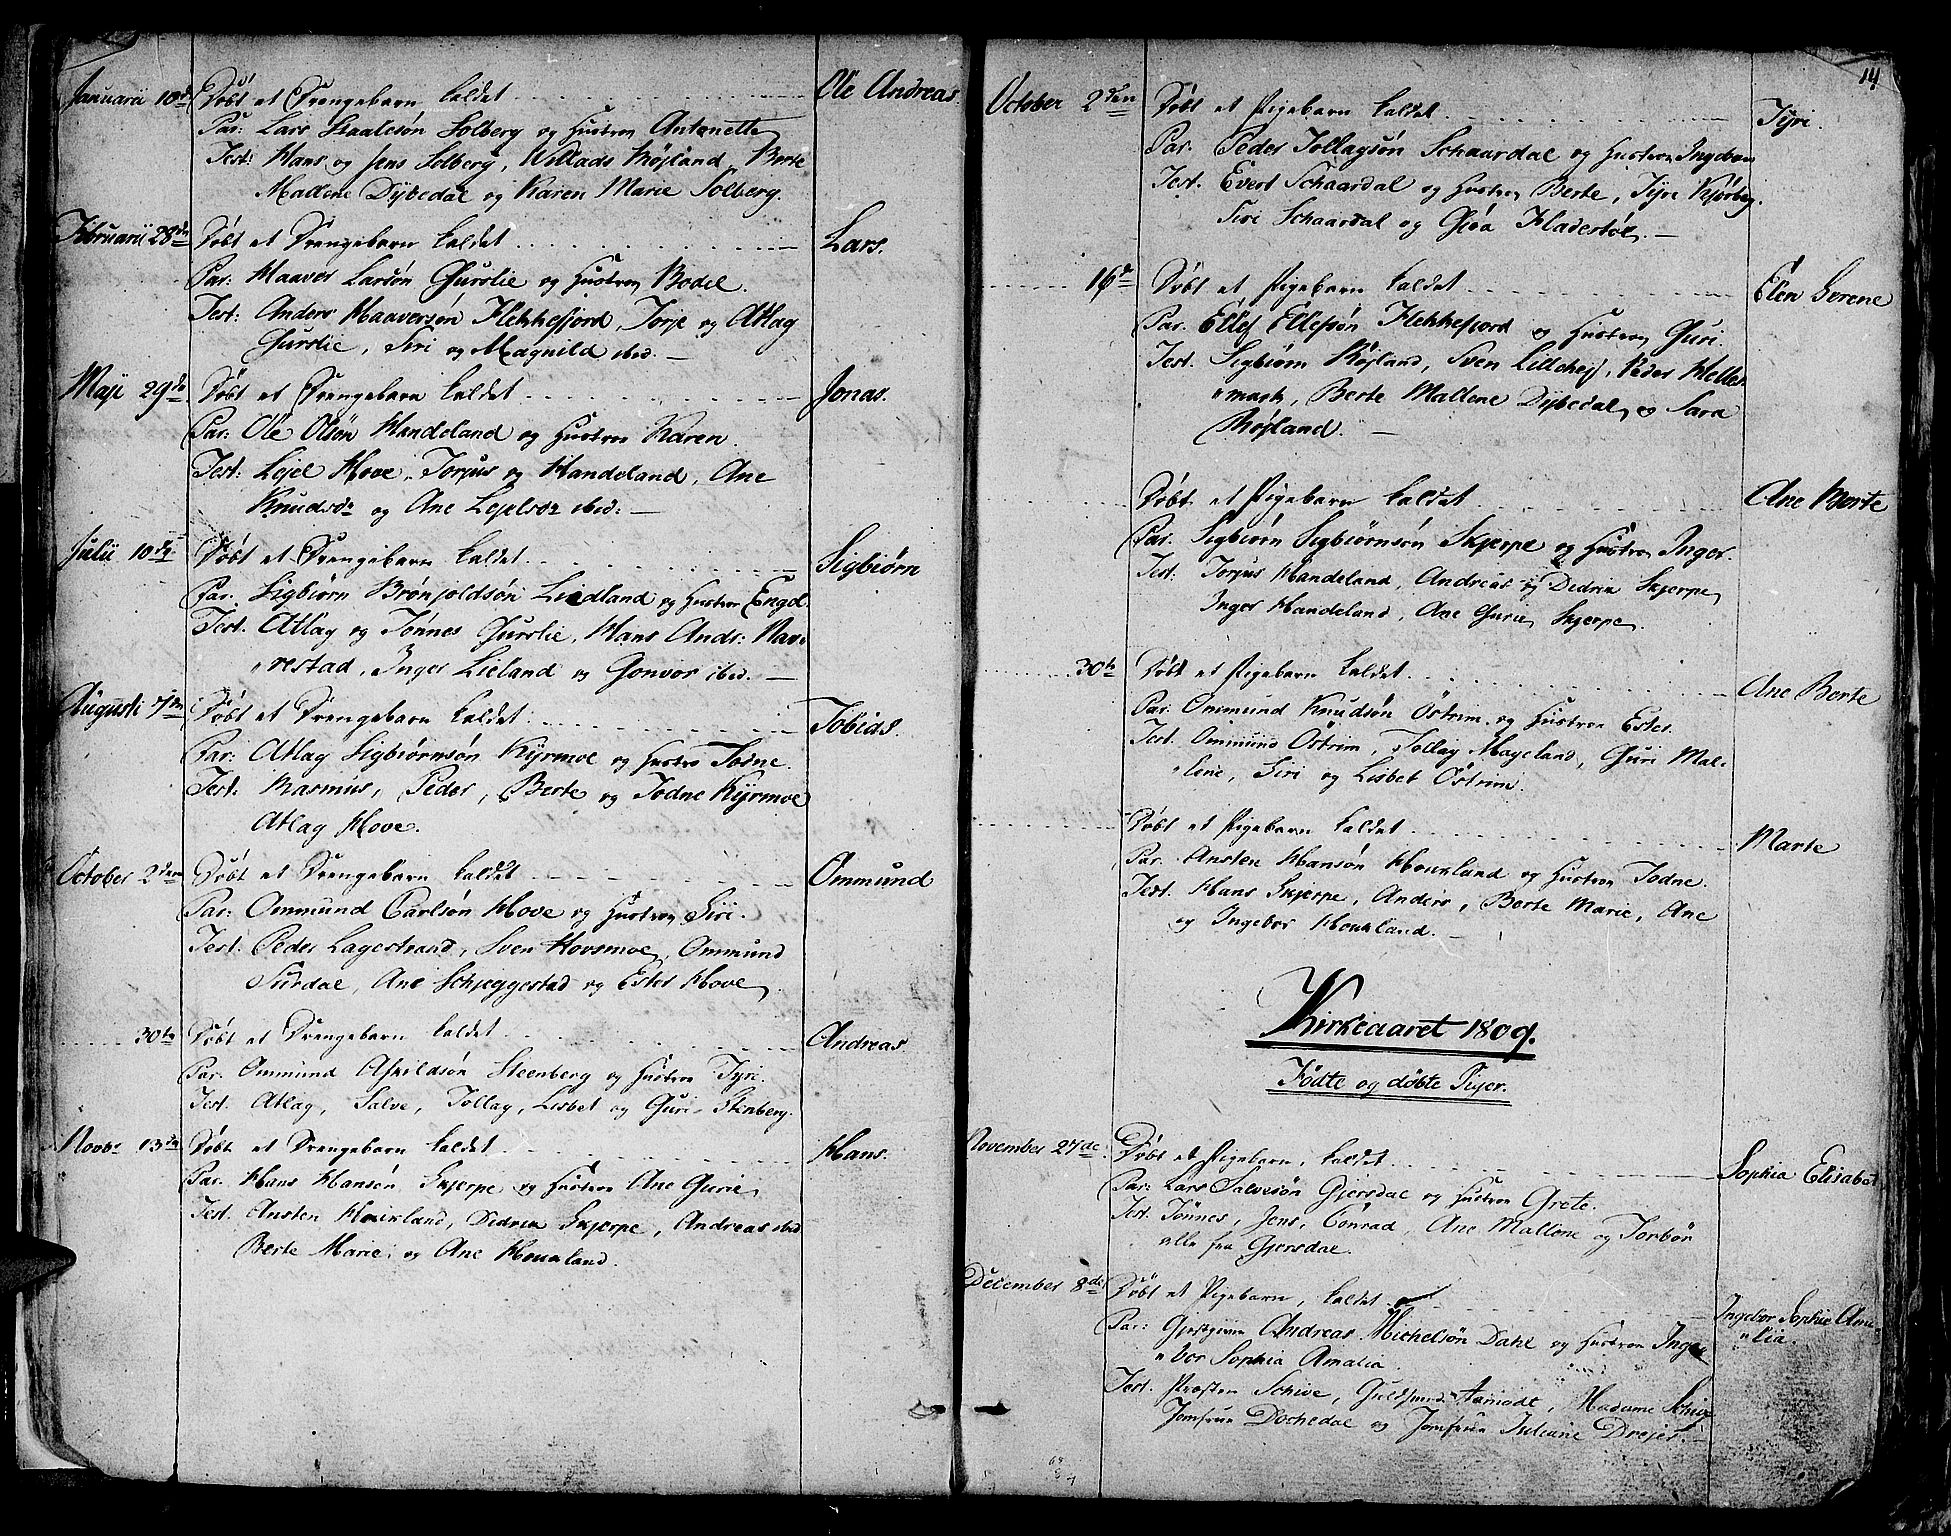 Januarii 10de Døbt et Drengebarn kaldet Ole Andreas
Par: Lars Staalesøn Solberg og Hustrue Antonette
Test: Hans og Jens Solberg, Willads Røjland, Berte
Madene Dybedal og Karen Marie Solberg.
Februarii 28de Døbt et Drengebarn kaldet Lars.
Par: Haaver Larsøn Gurslie og Hustrue Bodel.
Test: Anders Haaversøn Flekkefjord, Torje og Atlag
Gurslie, Siri og Magnild ibid.
Maji 29de Døbt et Drengebarn kaldet Jonas.
Par: Ole Olsøn Handeland og Hustrue Karen.
Test: Lejel Hove, Torjus og Handeland, Ane
Knudsdr og Ane Lejelsdr ibid:
Julii 10de Døbt et Drengebarn kaldet Sigbiørn
Par: Sigbiørn Brønjoldsøn Liedland og Hustrue Engel
Test. Atlag og Tønnes Gurslie, Hans Andr: Nav
restad, Inger Lieland og Gonvor ibid.
Augusti 7de Døbt et Drengebarn kaldet Tobias.
Par: Atlag Sigbiørnsøn Kyrmoe og Hustrue Todne.
Test: Rasmus, Peder, Berte og Todne Kyrmoe
Atlag Hove.
October 2den Døbt et Drengebarn kaldet Ommund
Par: Ommund Carlsøn Hove og Hustrue Siri.
Test: Peder Lagestrand, Sven Hovsmoe, Ommund
Surdal, Ane Schjeggestad og Ester Hove.
30te Døbt et Drengebarn kaldet Andreas.
Par. Ommund Askildsøn Steenberg og Hustrue Tyri.
Test. Atlag, Salve, Tollag, Lisbet og Guri Stenberg.
Novbr 13de Døbt et Drengebarn kaldet Hans.
Par. Hans Hansøn Skjerpe og Hustrue Ane Gurie
Test. Ansten Houkland, Didrik Skjerpe, Andreas ibid
Berte Marie og Ane Houkland.
14
October 2den Døbt et Pigebarn kaldet Tyri.
Par. Peder Tollagsøn Schaardal og Hustrue Ingebor
Test. Evert Schaardal og Hustrue Berte, Tyri Kjørberg.
Siri Schaardal og Gioa Fladestøl.
16de Døbt et Pigebarn kaldet Elen Serene
Par. Ellef Ellefsøn Flekkefjord og Hustrue Guri.
Test. Sigbiørn Røjland, Sven Lillehej, Peder Heller
mark, Berte Mallene Dybedal og Sara
Røjland.
Døbt et Pigebarn kaldet Ane Berte
Par. Sigbiørn Sigbiørnsøn Skjerpe og Hustrue Inger.
Test: Torjus Handeland, Andreas og Didrik Skjerpe
Inger Handeland, Ane Gurie Skjerpe.
30te Døbt et Pigebarn kaldet Ane Berte
Par. Ommund Knudsøn Östrim og Hustrue Ester
Test. Ommund Östrim, Tollag Mageland, Guri Mal
lene, Siri og Lisbet Östrim.
Døbt et Pigebarn kaldet Marte
Par. Ansten Hansøn Houkland og Hustrue Todne.
Test. Hans Skjerpe, Anders, Berte Marie, Ane
og Ingebor Houkland.
Kirkeaaret 1809.
Fødte og døbte Piger.
November 27de Døbt et Pigebarn, kaldet Sophia Elisabet
Par: Lars Salvesøn Gjersdal og Hustrue Grete.
Test. Tönnes, Jens, Conrad, Ane Mallene og Torbør
alle fra Gjersdal.
December 8de Døbt et Pigebarn, kaldet Ingebor Sophie Ama
lia.
Par: Gjestgiver Andreas Michelsön Dahl og Hustrue Inge
bor Sophia Amalia.
Test. Præsten Schive, Guldsmed Aamodt, Madame Schive
Jomfrue Dochedal og Jomfrue Juliane Drejer.